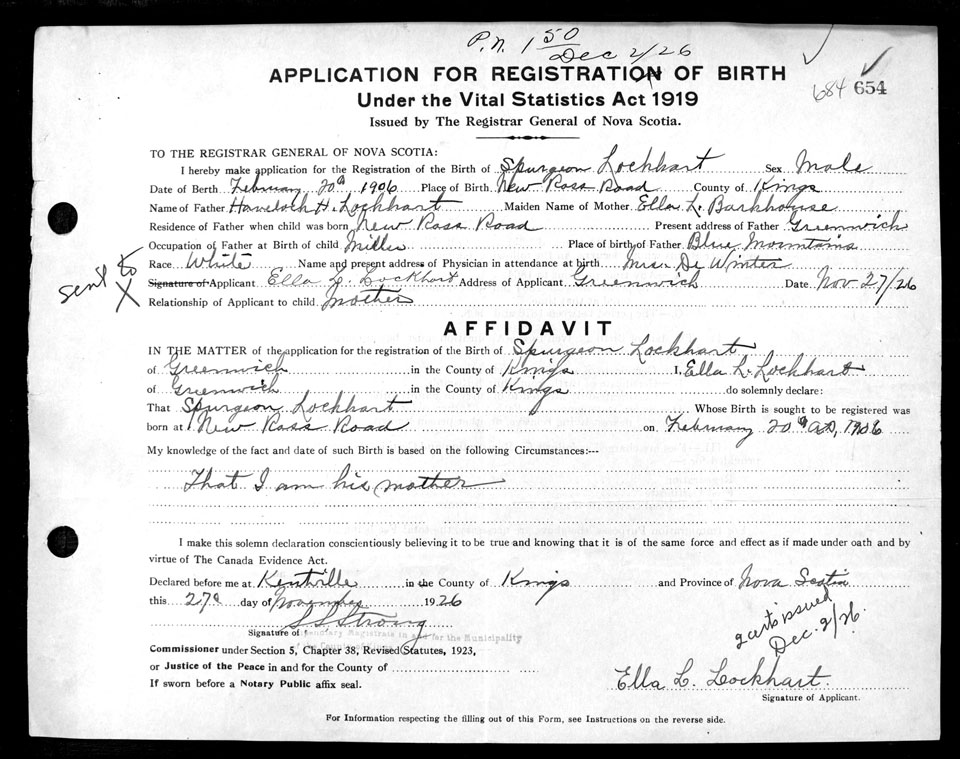 P.N. 1 50
Dec 2/26
684 654
APPLICATION FOR REGISTRATION OF BIRTH
Under the Vital Statistics Act 1919
Issued by The Registrar General of Nova Scotia.
TO THE REGISTRAR GENERAL OF NOVA SCOTIA:
I hereby make application for the Registration of the Birth of Spurgeon Lockhart Sex Male
Date of Birth February 20th 1906 Place of Birth New Ross Road County of Kings
Name of Father Havelock H. Lockhart Maiden Name of Mother Ella L. Barkhouse
Residence of Father when child was born New Ross Road Present address of Father Greenwich
Occupation of Father at Birth of child Miller Place of birth of Father Blue Mountains
Race White Name and present address of Physician in attendance at birth Mrs. De Winter
sent to X
Signature of Applicant Ella L. Lockhart Address of Applicant Greenwich Date Nov 27/26
Relationship of Applicant to child Mother
AFFIDAVIT
IN THE MATTER of the application for the registration of the Birth of Spurgeon Lockhart
of Greenwich in the County of Kings I, Ella L. Lockhart
of Greenwich in the County of Kings do solemnly declare:
That Spurgeon Lockhart Whose Birth is sought to be registered was
born at New Ross Road on February 20th AD, 1906
My knowledge of the fact and date of such Birth is based on the following Circumstances:---
That I am his mother
I make this solemn declaration conscientiously believing it to be true and knowing that it is of the same force and effect as if made under oath and by
virtue of The Canada Evidence Act.
Declared before me at Kentville in the County of Kings and Province of Nova Scotia
this 27th day of November 1926
S S Strong
Signature of Stipendiary Magistrate in and for the Municipality
Commissioner under Section 5, Chapter 38, Revised Statutes, 1923,
or Justice of the Peace in and for the County of
If sworn before a Notary Public affix seal.
2 certs issued
Dec. 2/26.
Ella L. Lockhart.
Signature of Applicant.
For Information respecting the filling out of this Form, see Instructions on the reverse side.